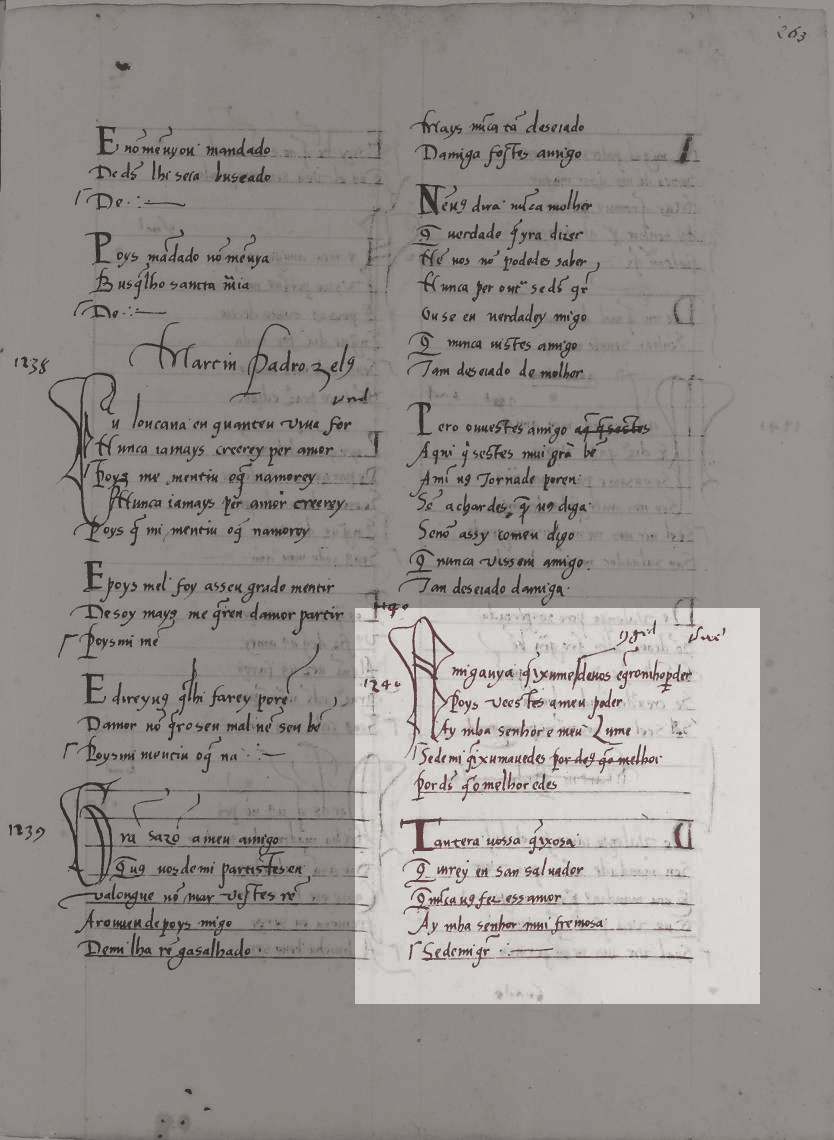 263
E nō mēuyou mandado
De ds̄ lhi seia buscado
De
Poys mādado nō mēuya
Busq̄lho sancta m̄ia
De
1238
Martin Padrozelꝯ
Fuy loucana en quanteu uyua for
Nunca iamays creerey per amor
Poys me mentiu o q̄ namorey
Nunca iamays per amor creerey
Poys q̄ mi mentiu o q̄ namorey
E poys mel foy asseu grado mentir
Desoy mays me q̄ren damor partir
Poys mi me
E direyuꝯ q̄lhi farey porē
Damor nō q̄ro seu mal nē seu bē
Poys mi mentiu o q̄ na
1239
sazō a meu amigo
q̄ uꝯ uos de mi partistes en
ualongue nō mar uistes rē
A rouuen depoys migo
De mi lha rē gasalhado
Mays nūca tā deseiado
Damiga fostes amigo
Nēuꝯ dira nūca molher
q̄ uerdade q̄yra dizer
Nē uos nō podedes saber
Nunca per outr̄ se ds̄ q̄r
Ou se eu uerdadey migo
q̄ nunca uistes amigo
Tam deseiado de molher
Pero ouuestes amigo
Aqui q̄ sestes mui grā bē
A mī uꝯ tornade poren
Se achardes q̄ uꝯ diga
Senō assy comeu digo
q̄ nunca uissem amigo
Tam deseiado damiga
1240
1240
Amiga uya q̄ixume de uos
Poys ueestes a meu poder
Ay mha senhor e meu lume
Se de mi q̄ixum auedes por ds̄ q̄ o melhor
Por ds̄ q̄ o melhor edes
Tantera uossa q̄ixosa
q̄ unrey en san saluador
q̄ nūca uꝯ fez essamor
Ay mha senhor mui fremosa
Se de mi q̄r